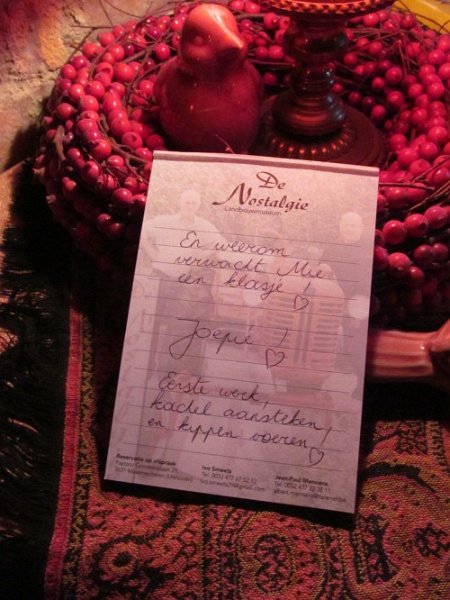 De
Nostalgie
Landbouwmuseum
En weerom
verwacht Mie
een klasje !
Joepie !
Eerste werk,
kachel aansteken,
en kippen voeren
Reservatie op afspraak
Ivo Smeets
Jean-Paul Mannens